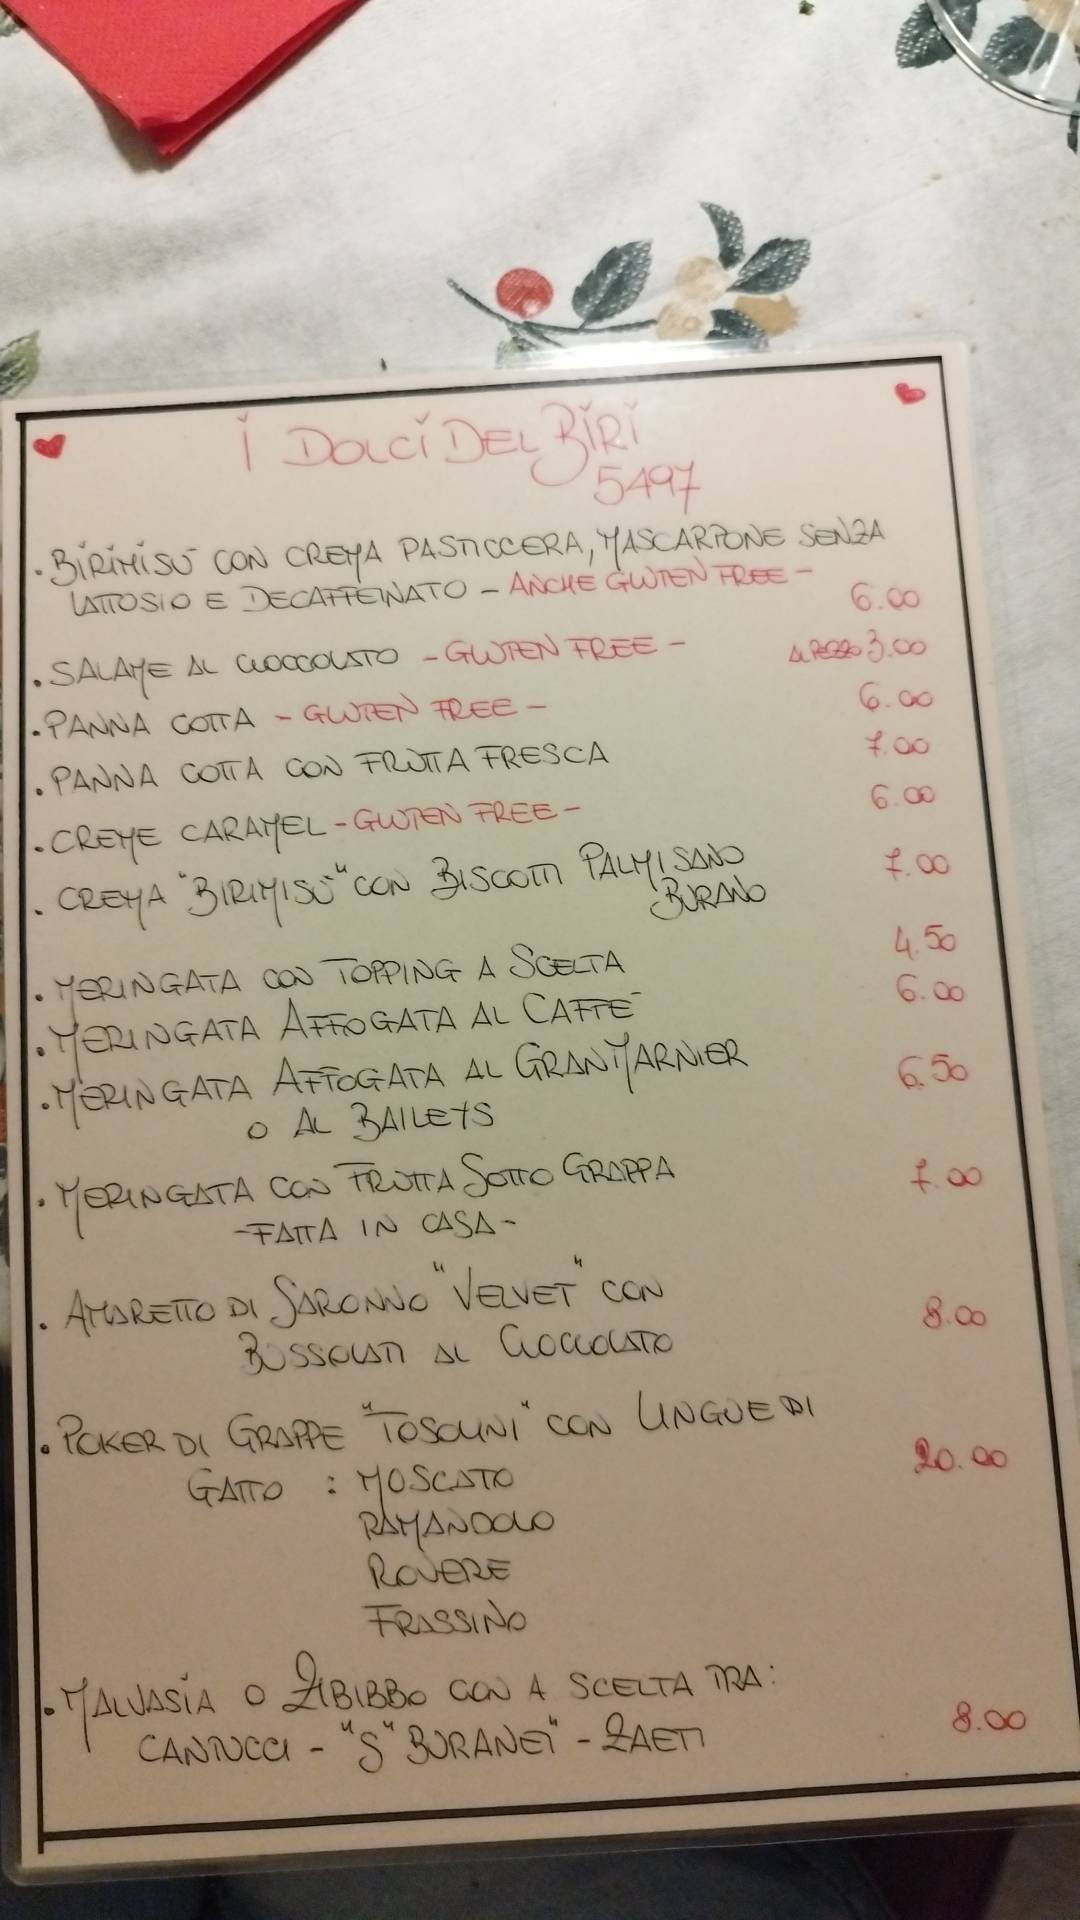 I DOLCI DEL BIRI
5497
. BIRIMISÙ CON CREMA PASTICCERA, MASCARPONE SENZA
LATTOSIO E DECAFFEINATO - ANCHE GLUTEN FREE - 6.00
. SALAME AL CIOCCOLATO - GLUTEN FREE - AL PEZZO 3.00
. PANNA COTTA - GLUTEN FREE - 6.00
. PANNA COTTA CON FRUTTA FRESCA 7.00
. CREME CARAMEL - GLUTEN FREE - 6.00
. CREMA "BIRIMISÙ" CON BISCOTTI PALMISANO 7.00
BURANO
. MERINGATA CON TOPPING A SCELTA 4.50
. MERINGATA AFFOGATA AL CAFFÈ 6.00
. MERINGATA AFFOGATA AL GRANMARNIER 6.50
O AL BAILEYS
. MERINGATA CON FRUTTA SOTTO GRAPPA 7.00
- FATTA IN CASA -
. AMARETTO DI SARONNO "VELVET" CON 8.00
BUSSOLATI AL CIOCCOLATO
. POKER DI GRAPPE "TOSOLINI" CON LINGUE DI 20.00
GATTO : MOSCATO
RAMANDOLO
ROVERE
FRASSINO
. MALVASIA O ZIBIBBO CON A SCELTA TRA:
CANTUCCI - "S" BURANEI" - ZAETI 8.00